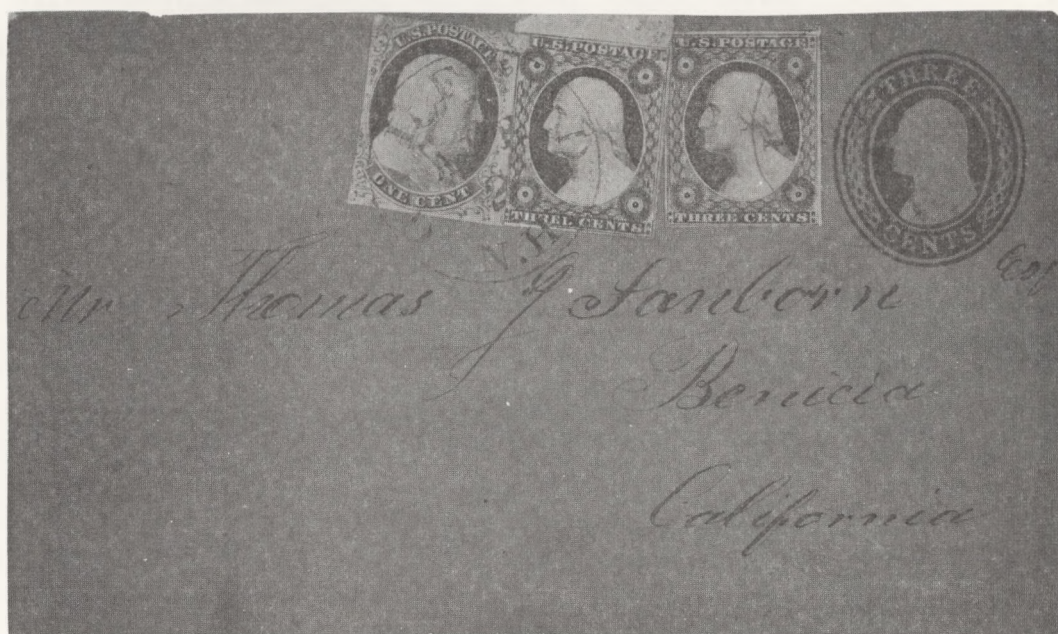 U.S. POSTAGE
ONE CENT
U.S. POSTAGE
THREE CENTS
U.S. POSTAGE
THREE CENTS
THREE
CENTS
N.H
Mr Thomas J Sanborn Esq
Benicia
California